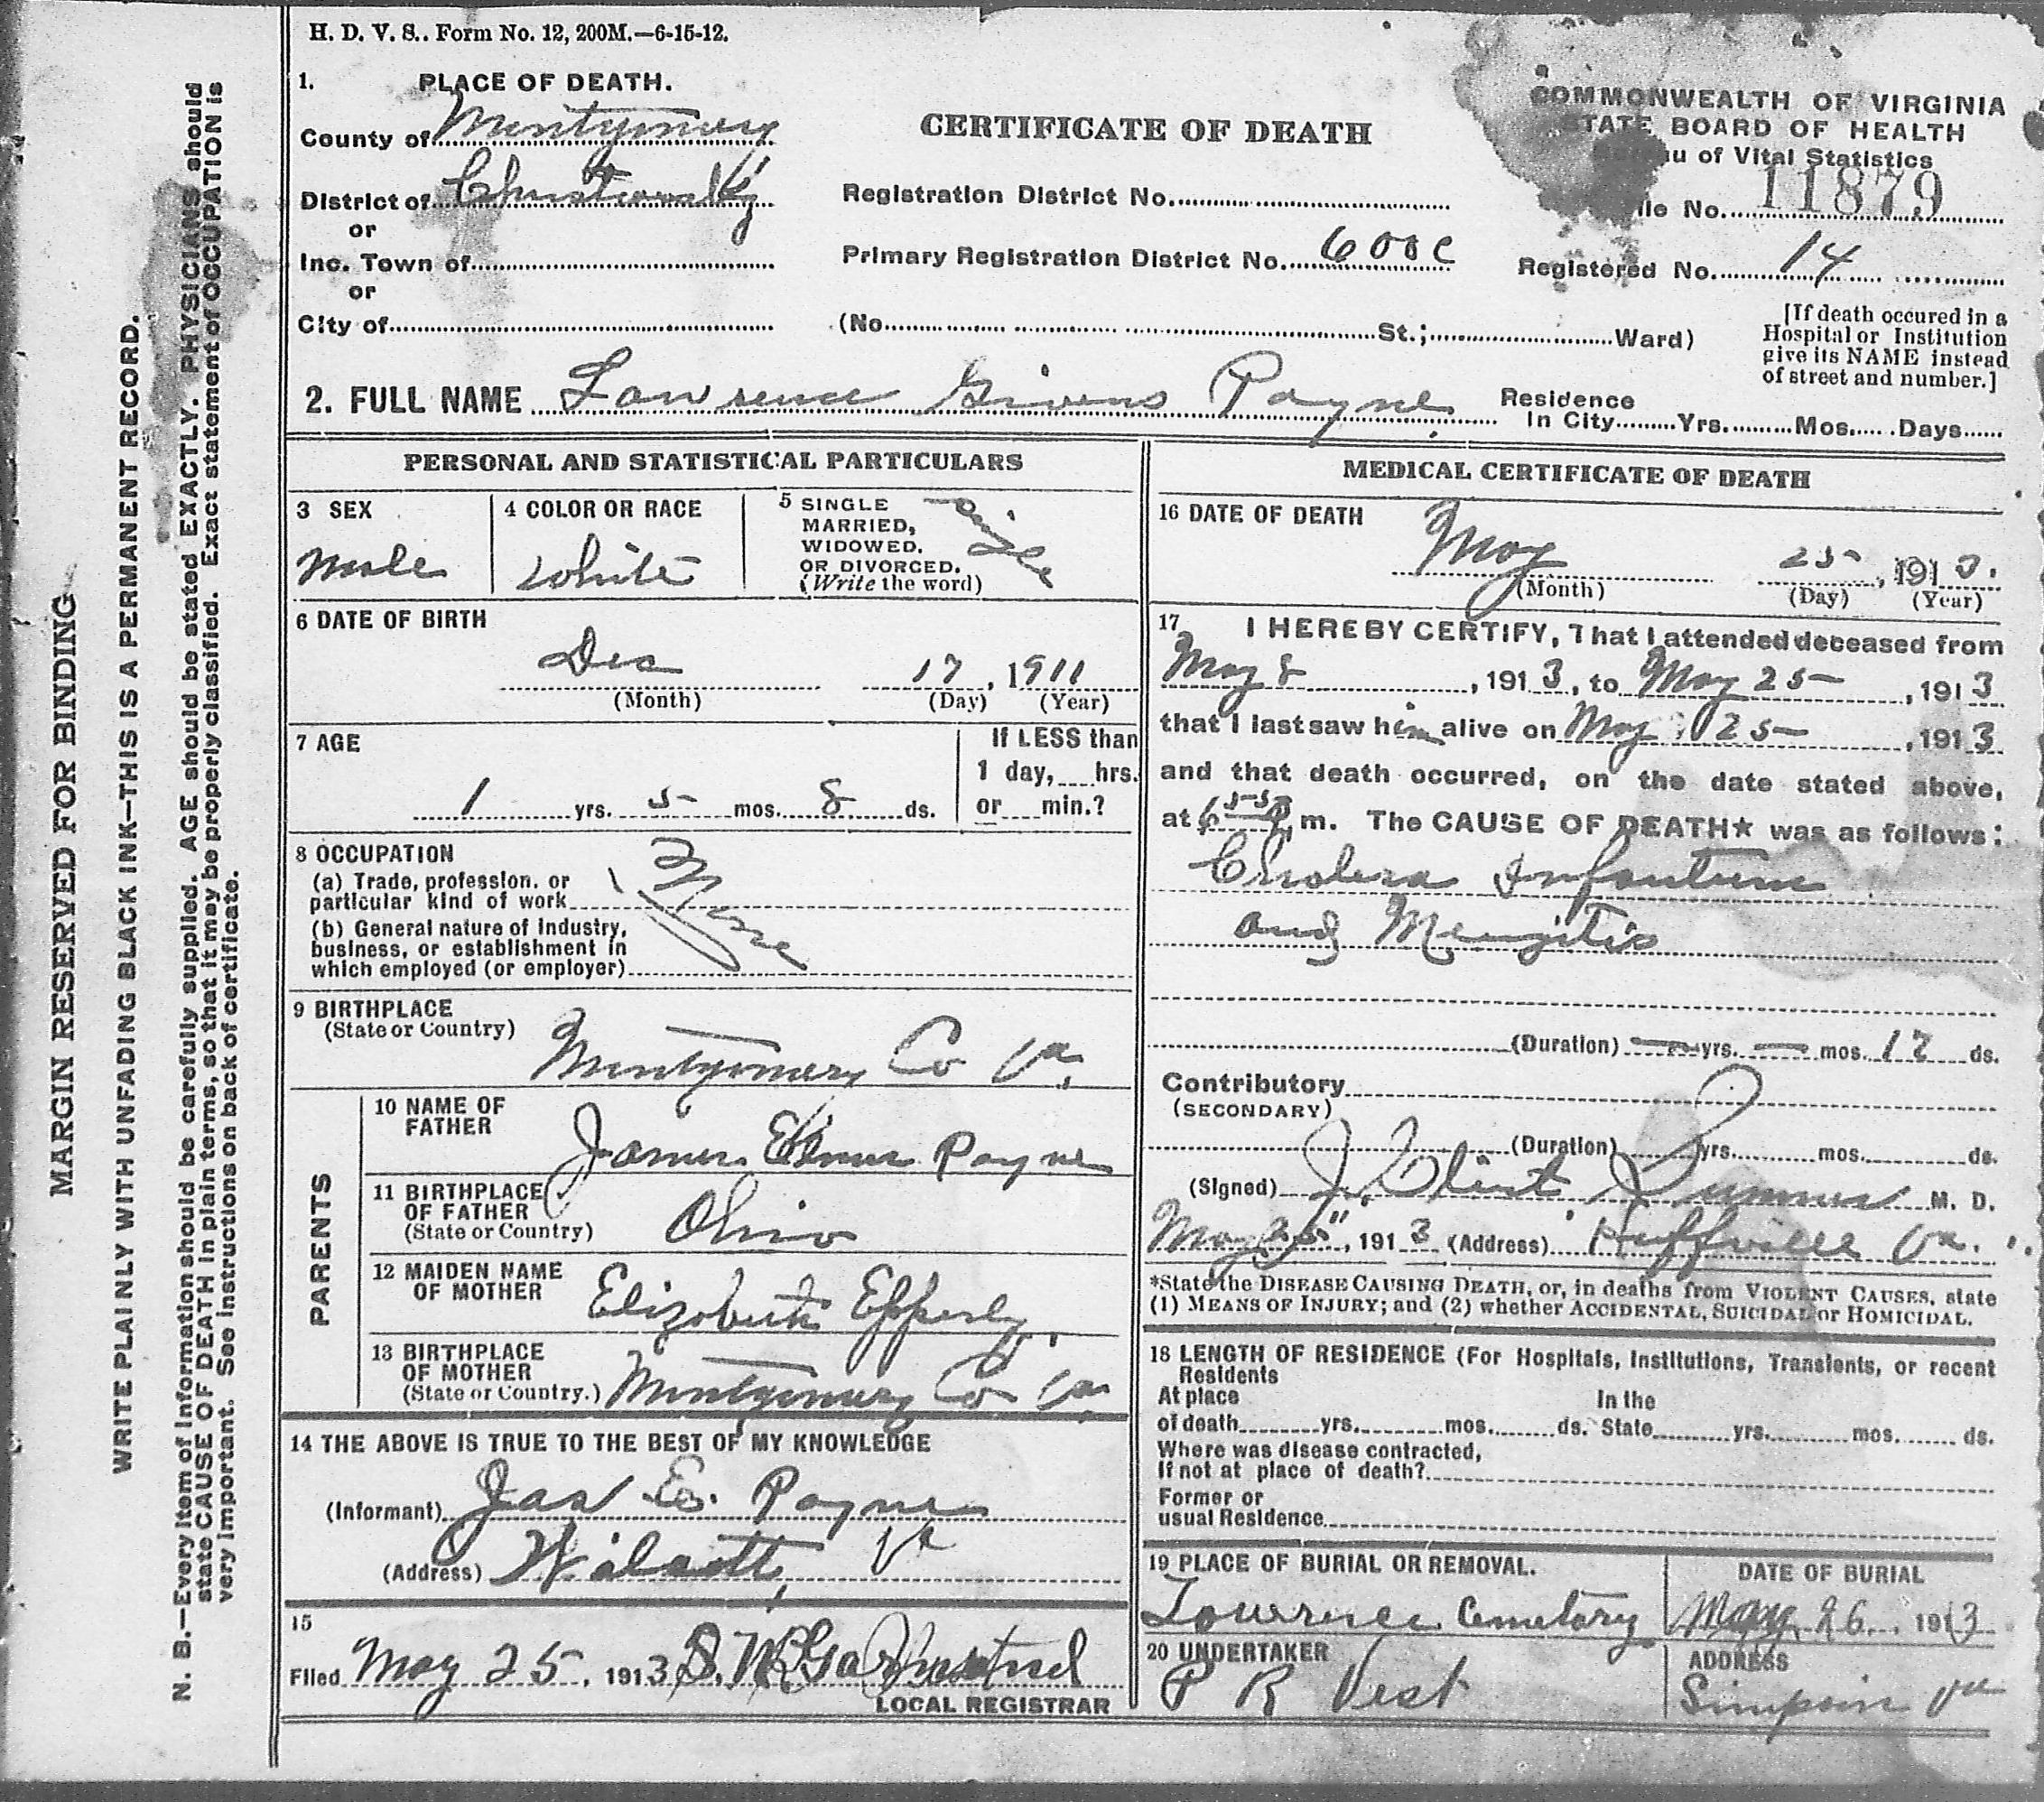 H. D. V. S.. Form No. 12, 200M.—6-15-12.
MARGIN RESERVED FOR BINDING
WRITE PLAINLY WITH UNFADING BLACK INK—THIS IS A PERMANENT RECORD.
N. B.—Every item of information should be carefully supplied. AGE should be stated EXACTLY. PHYSICIANS should
state CAUSE OF DEATH in plain terms, so that it may be properly classified. Exact statement of OCCUPATION is
very important. See instructions on back of certificate.
1. PLACE OF DEATH.
County of Montgomery
District of Christiansb'g
or
Inc. Town of
or
City of
CERTIFICATE OF DEATH
Registration District No.
Primary Registration District No. 600c
(No. St.; Ward)
COMMONWEALTH OF VIRGINIA
STATE BOARD OF HEALTH
u of Vital Statistics
ile No. 11879
Registered No. 14
[If death occured in a
Hospital or Institution
give its NAME instead
of street and number.]
2. FULL NAME Lawrence Givens Payne
Residence
In City Yrs. Mos. Days
PERSONAL AND STATISTICAL PARTICULARS
3 SEX
Male
4 COLOR OR RACE
White
5 SINGLE
MARRIED,
WIDOWED.
OR DIVORCED.
(Write the word)
Single
6 DATE OF BIRTH
Dec 17, 1911
(Month) (Day) (Year)
7 AGE
1 yrs. 5 mos. 8 ds.
If LESS than
1 day, hrs.
or min.?
8 OCCUPATION
(a) Trade, profession, or
particular kind of work
(b) General nature of Industry,
business, or establishment in
which employed (or employer)
None
9 BIRTHPLACE
(State or Country)
Montgomery Co Va.
PARENTS
10 NAME OF
FATHER
James Elmer Payne
11 BIRTHPLACE
OF FATHER
(State or Country)
Ohio
12 MAIDEN NAME
OF MOTHER
Elizabeth Epperly
13 BIRTHPLACE
OF MOTHER
(State or Country.)
Montgomery Co Va.
14 THE ABOVE IS TRUE TO THE BEST OF MY KNOWLEDGE
(Informant) Jas E. Payne
(Address) Va
15
Filed May 25, 1913
LOCAL REGISTRAR
MEDICAL CERTIFICATE OF DEATH
16 DATE OF DEATH
May 25, 1913.
(Month) (Day) (Year)
17 I HEREBY CERTIFY, That I attended deceased from
May 8, 1913, to May 25, 1913
that I last saw him alive on May 25, 1913
and that death occurred, on the date stated above,
at m. The CAUSE OF DEATH★ was as follows:
Cholera Infantum
and Mengitis
(Duration) — yrs. — mos. 17 ds.
Contributory
(SECONDARY)
(Duration) yrs. mos. ds.
(Signed) M. D.
May 25", 1913 (Address) Huffville Va.
*State the DISEASE CAUSING DEATH, or, in deaths from VIOLENT CAUSES, state
(1) MEANS OF INJURY; and (2) whether ACCIDENTAL, SUICIDAL or HOMICIDAL.
18 LENGTH OF RESIDENCE (For Hospitals, Institutions, Transients, or recent
Residents
At place In the
of death yrs. mos. ds. State yrs. mos. ds.
Where was disease contracted,
If not at place of death?
Former or
usual Residence
19 PLACE OF BURIAL OR REMOVAL.
Lawrence Cemetary
DATE OF BURIAL
May 26, 1913
20 UNDERTAKER
P R Vest
ADDRESS
Simpson Va